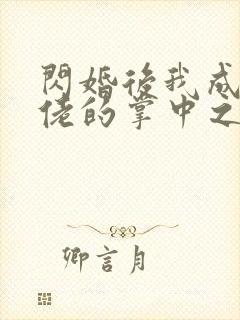 閃婚後我成
佬的掌中之
卿言月